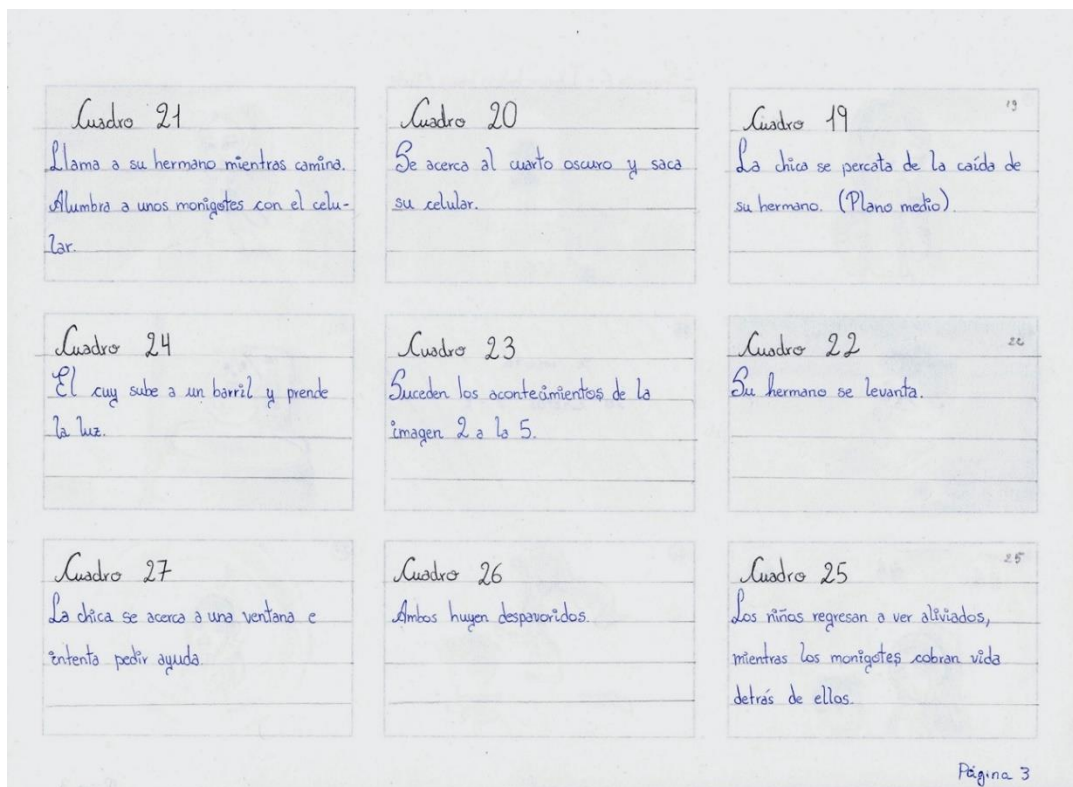 Cuadro 21
Llama a su hermano mientras camina.
Alumbra a unos monigotes con el celu-
lar.
Cuadro 20
Se acerca al cuarto oscuro y saca
su celular.
19
Cuadro 19
La chica se percata de la caída de
su hermano. (Plano medio).
Cuadro 24
El cuy sube a un barril y prende
la luz.
Cuadro 23
Suceden los acontecimientos de la
imagen 2 a la 5.
22
Cuadro 22
Su hermano se levanta.
Cuadro 27
La chica se acerca a una ventana e
intenta pedir ayuda.
Cuadro 26
Ambos huyen despavoridos.
25
Cuadro 25
Los niños regresan a ver aliviados,
mientras los monigotes cobran vida
detrás de ellos.
Página 3